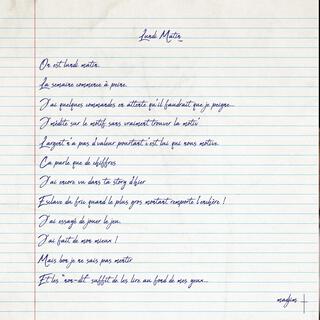 Lundi Matin
On est lundi matin.
La semaine commence à peine.
J'ai quelques commandes en attente qu'il faudrait que je peigne...
J'médite sur le motif sans vraiment trouver la motiv'
L'argent n'a pas d'valeur pourtant c'est lui qui nous motive.
Ca parle que de chiffres
J'ai encore vu dans ta story d'hier
Esclave du fric quand le plus gros montant remporte l'enchère !
J'ai essayé de jouer le jeu.
J'ai fait de mon mieux !
Mais bon je ne sais pas mentir
Et les "non-dit" suffit de les lire au fond de mes yeux...
madjim